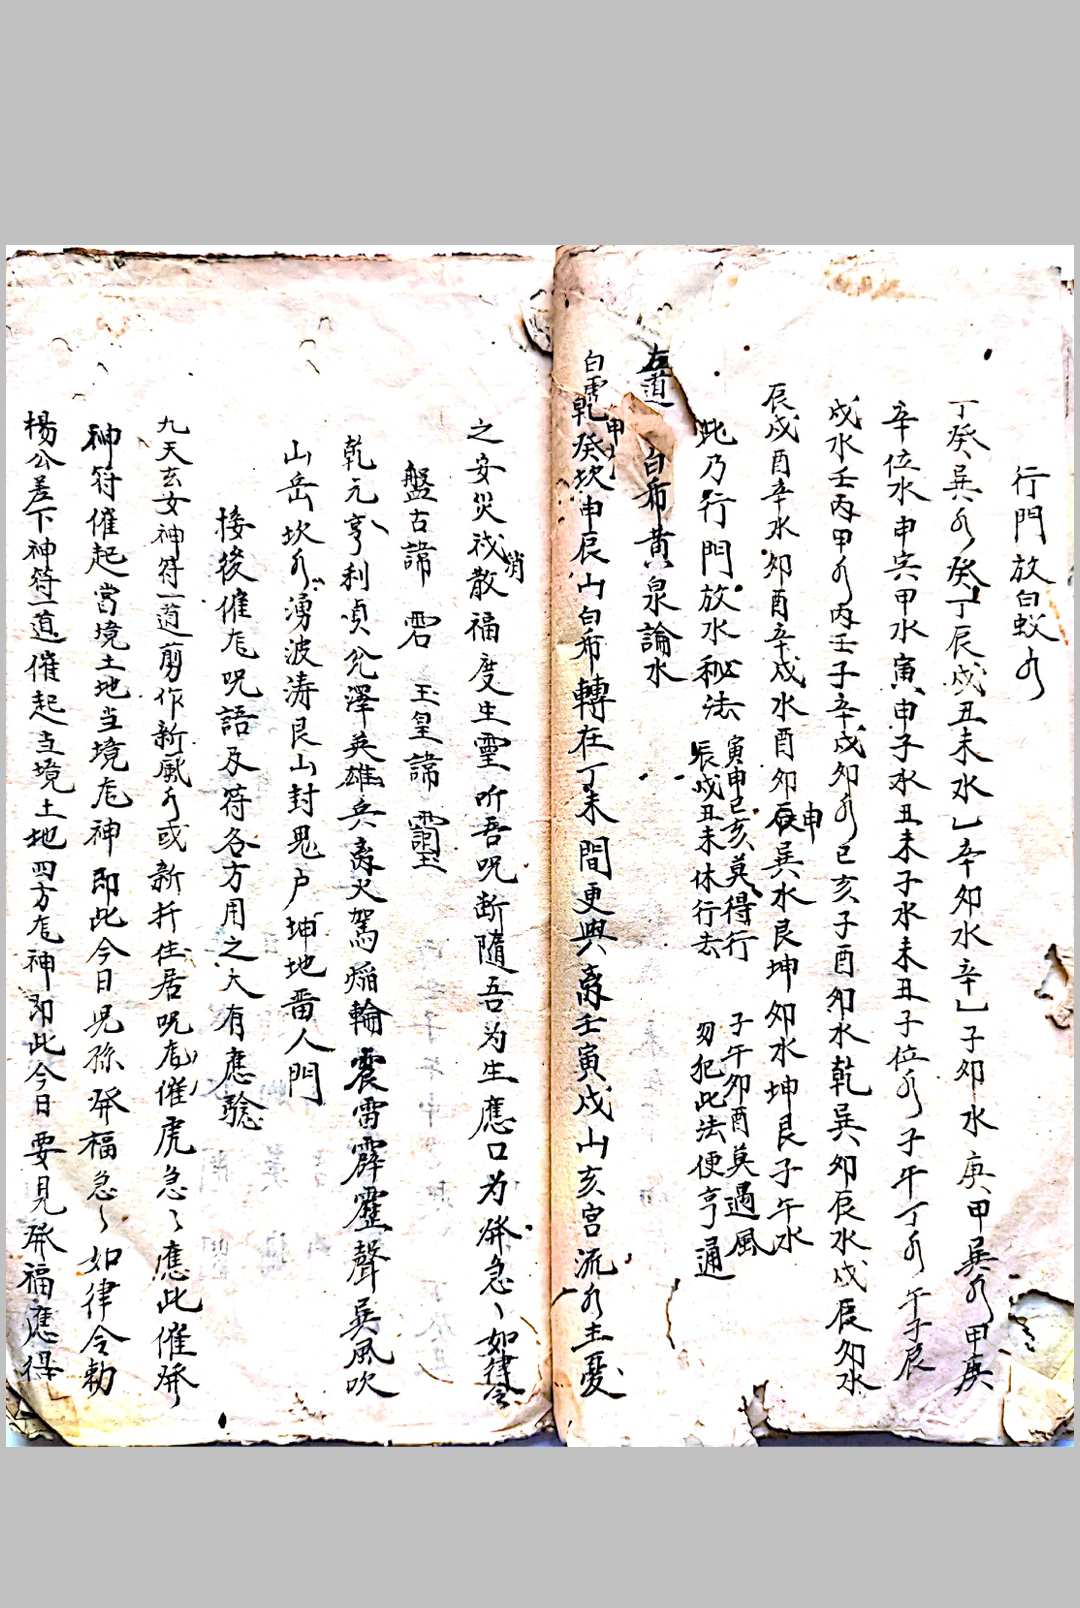 行門放白蚁水
丁癸巽水癸丁辰戌丑未水乙辛卯水辛乙子卯水庚甲巽水甲庚
辛位水申寅甲水寅申子水丑未子水未丑子位水子午丁水午子辰
戌水壬丙甲水丙壬子辛戌卯水已亥子酉卯水乾巽卯辰水戌辰卯水
辰戌酉辛水卯酉辛戌水酉卯辰申巽水艮坤卯水坤艮子午水
此乃行門放水秘法
寅申巳亥莫得行 子午卯酉莫過風
辰戌丑未休行去 勿犯此法便亨通
左道 白布黄泉論水
白虎乾申癸坎申辰山白布轉在丁未間更與离壬寅戌山亥宫流水主憂
之安災消散福度生靈听吾呪断隨吾为生應口为發急急如律令
盤古諱 玉皇諱
乾元亨利貞兊澤英雄兵离火駕焰輪震雷霹靂聲巽風吹
山岳坎水湧波涛艮山封鬼户坤地畱人門
接後催龙呪語及符各方用之大有應騐
九天玄女神符一道剪作新厰水或新折住居呪龙催虎急急應此催發
神符催起當境土地当境龙神即此今日児孫發福急急如律令勅
楊公差下神符一道催起当境土地四方龙神即此今日要見發福應得